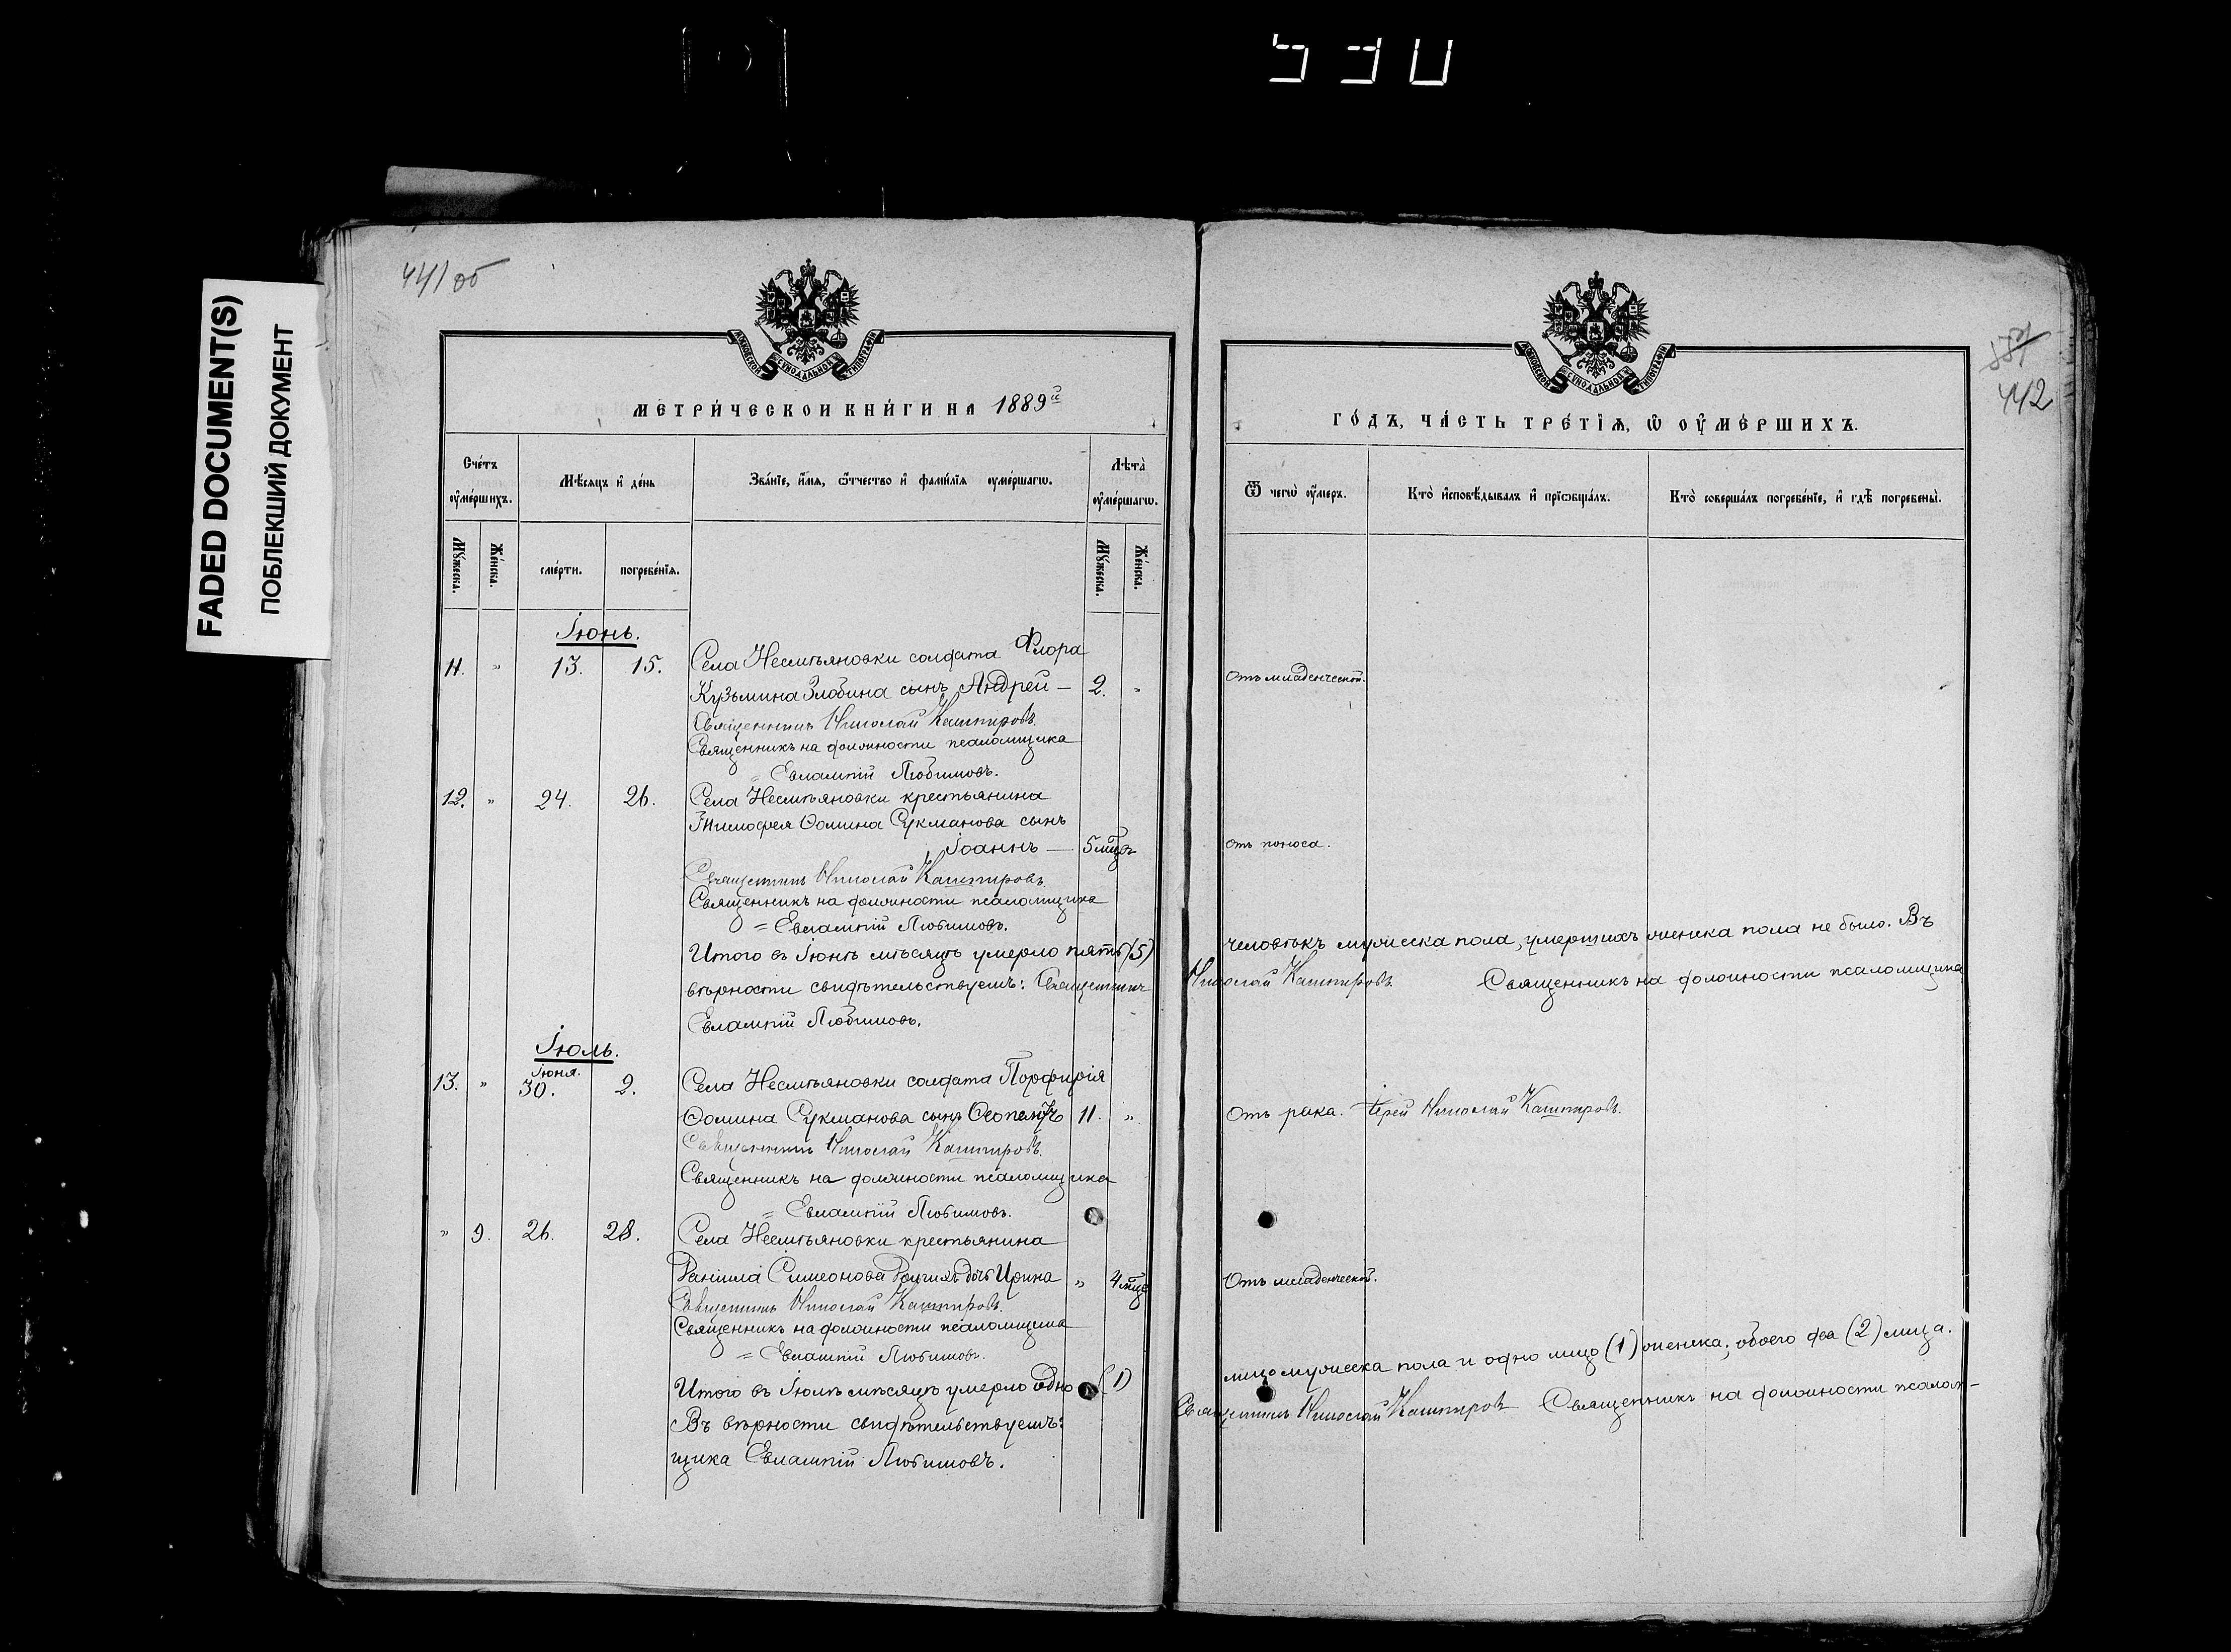 530
FADED DOCUMENT(S)
ПОБЛЕКШИЙ ДОКУМЕНТ
441 об
МОСКОВСКОЙ СѴНОДАЛЬНОЙ ТИПОГРАФІИ
МЕТРИ́ЧЕСКОЙ КНИ́ГИ НА 1889й
Сче́тъ оумершихъ.
Мѣсяцъ и де́нь
Зва́нїе, и́мя, ѻ҆́тчество и фами́лїя оуме́ршагѡ.
Лѣта̀ оуме́ршагѡ.
Мꙋ́жеска.
Же́нска.
сме́рти.
погребе́нїя.
Мꙋ́жеска.
Же́нска.
Іюнь.
11. " 13. 15. Села Несмѣяновки солдата Флора
Кузьмина Злобина сынъ Андрей — 2. "
Священникъ Николай Кашпировъ.
Священникъ на должности псаломщика
= Евлампій Любимовъ.
12. " 24. 26. Села Несмѣяновки крестьянина
Тимофея Ѳомина Сукманова сынъ
Іоаннъ — 5 мцв
Священникъ Николай Кашпировъ.
Священникъ на должности псаломщика
= Евлампій Любимовъ.
Итого въ Іюнѣ мѣсяцѣ умерло пять (5)
вѣрности свидѣтельствуемъ: Священникъ
Евлампій Любимовъ.
Іюль.
Іюня.
13. " 30. 2. Села Несмѣяновки солдата Порфирія
Ѳомина Сукманова сынъ Ѳеопемптъ 11. "
Священникъ Николай Кашпировъ.
Священникъ на должности псаломщика
= Евлампій Любимовъ.
" 9. 26. 28. Села Несмѣяновки крестьянина
Даніила Симеонова дочь Ирина " 4 мце
Священникъ Николай Кашпировъ.
Священникъ на должности псаломщика
= Евлампій Любимовъ.
Итого въ Іюлѣ мѣсяцѣ умерло одно (1)
Въ вѣрности свидѣтельствуемъ:
щика Евлампій Любимовъ.
442
МОСКОВСКОЙ СѴНОДАЛЬНОЙ ТИПОГРАФІИ
ГО́ДЪ, ЧА́СТЬ ТРЕ́ТЇѦ, Ѡ ОУМЕ́РШИХЪ.
Ѿ чегѡ̀ оу́меръ.
Кто̀ и҆сповѣ́дывалъ и прїѡбща́лъ.
Кто̀ соверша́лъ погребе́нїе, и гдѣ̀ погребены̀.
Отъ младенческой.
отъ поноса.
человѣкъ мужеска пола, умершихъ женска пола не было. Въ
Николай Кашпировъ. Священникъ на должности псаломщика
Отъ рака. Іерей Николай Кашпировъ.
Отъ младенческой.
лицо мужеска пола и одно лицо (1) женска; обоего два (2) лица.
Священникъ Николай Кашпировъ Священникъ на должности псалом-